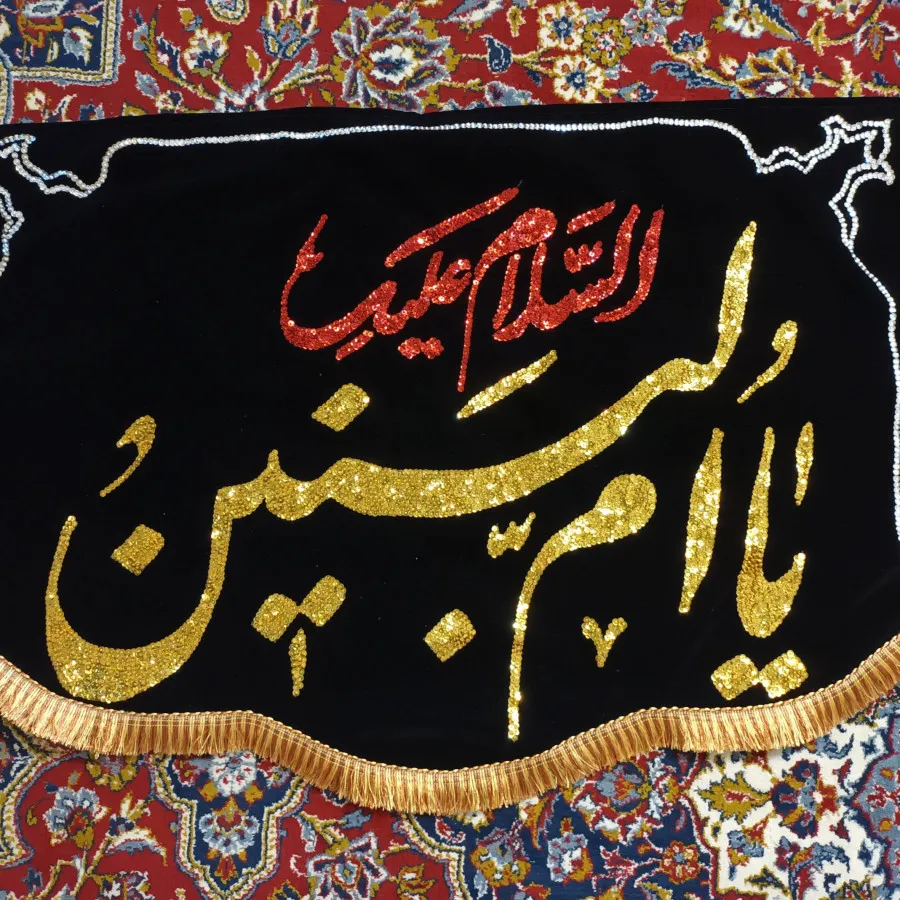 السَّلام علیک
یا اُمّ البَنینُ